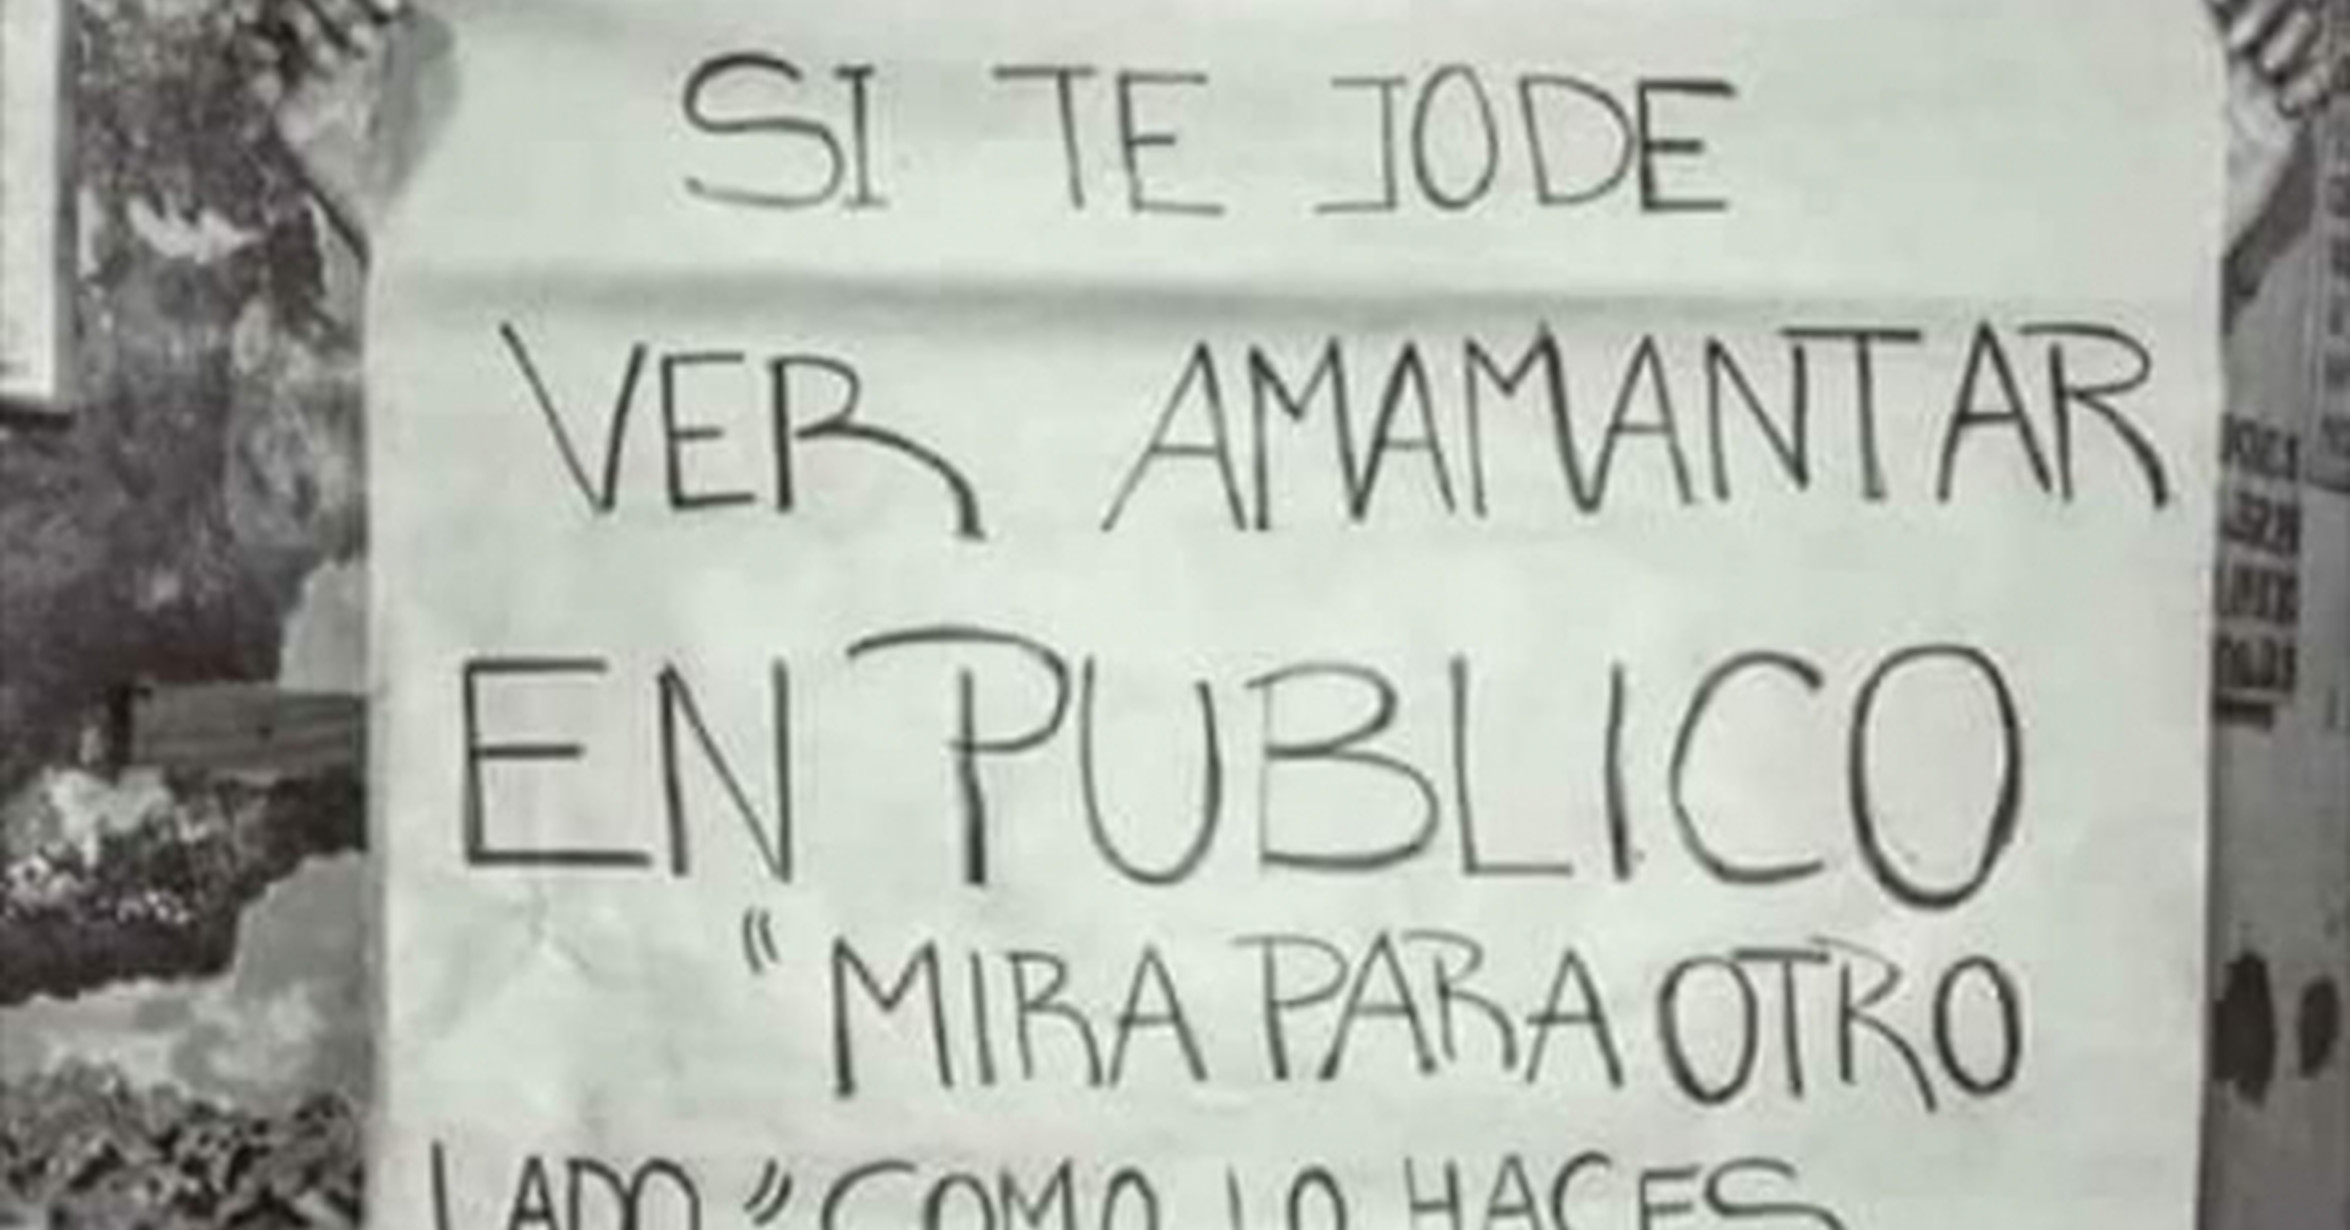 SI TE JODE
VER AMAMANTAR
EN PUBLICO
"MIRA PARA OTRO
LADO" COMO LO HACES